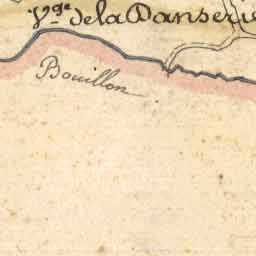 V.ge de la Danserie
Bouillon